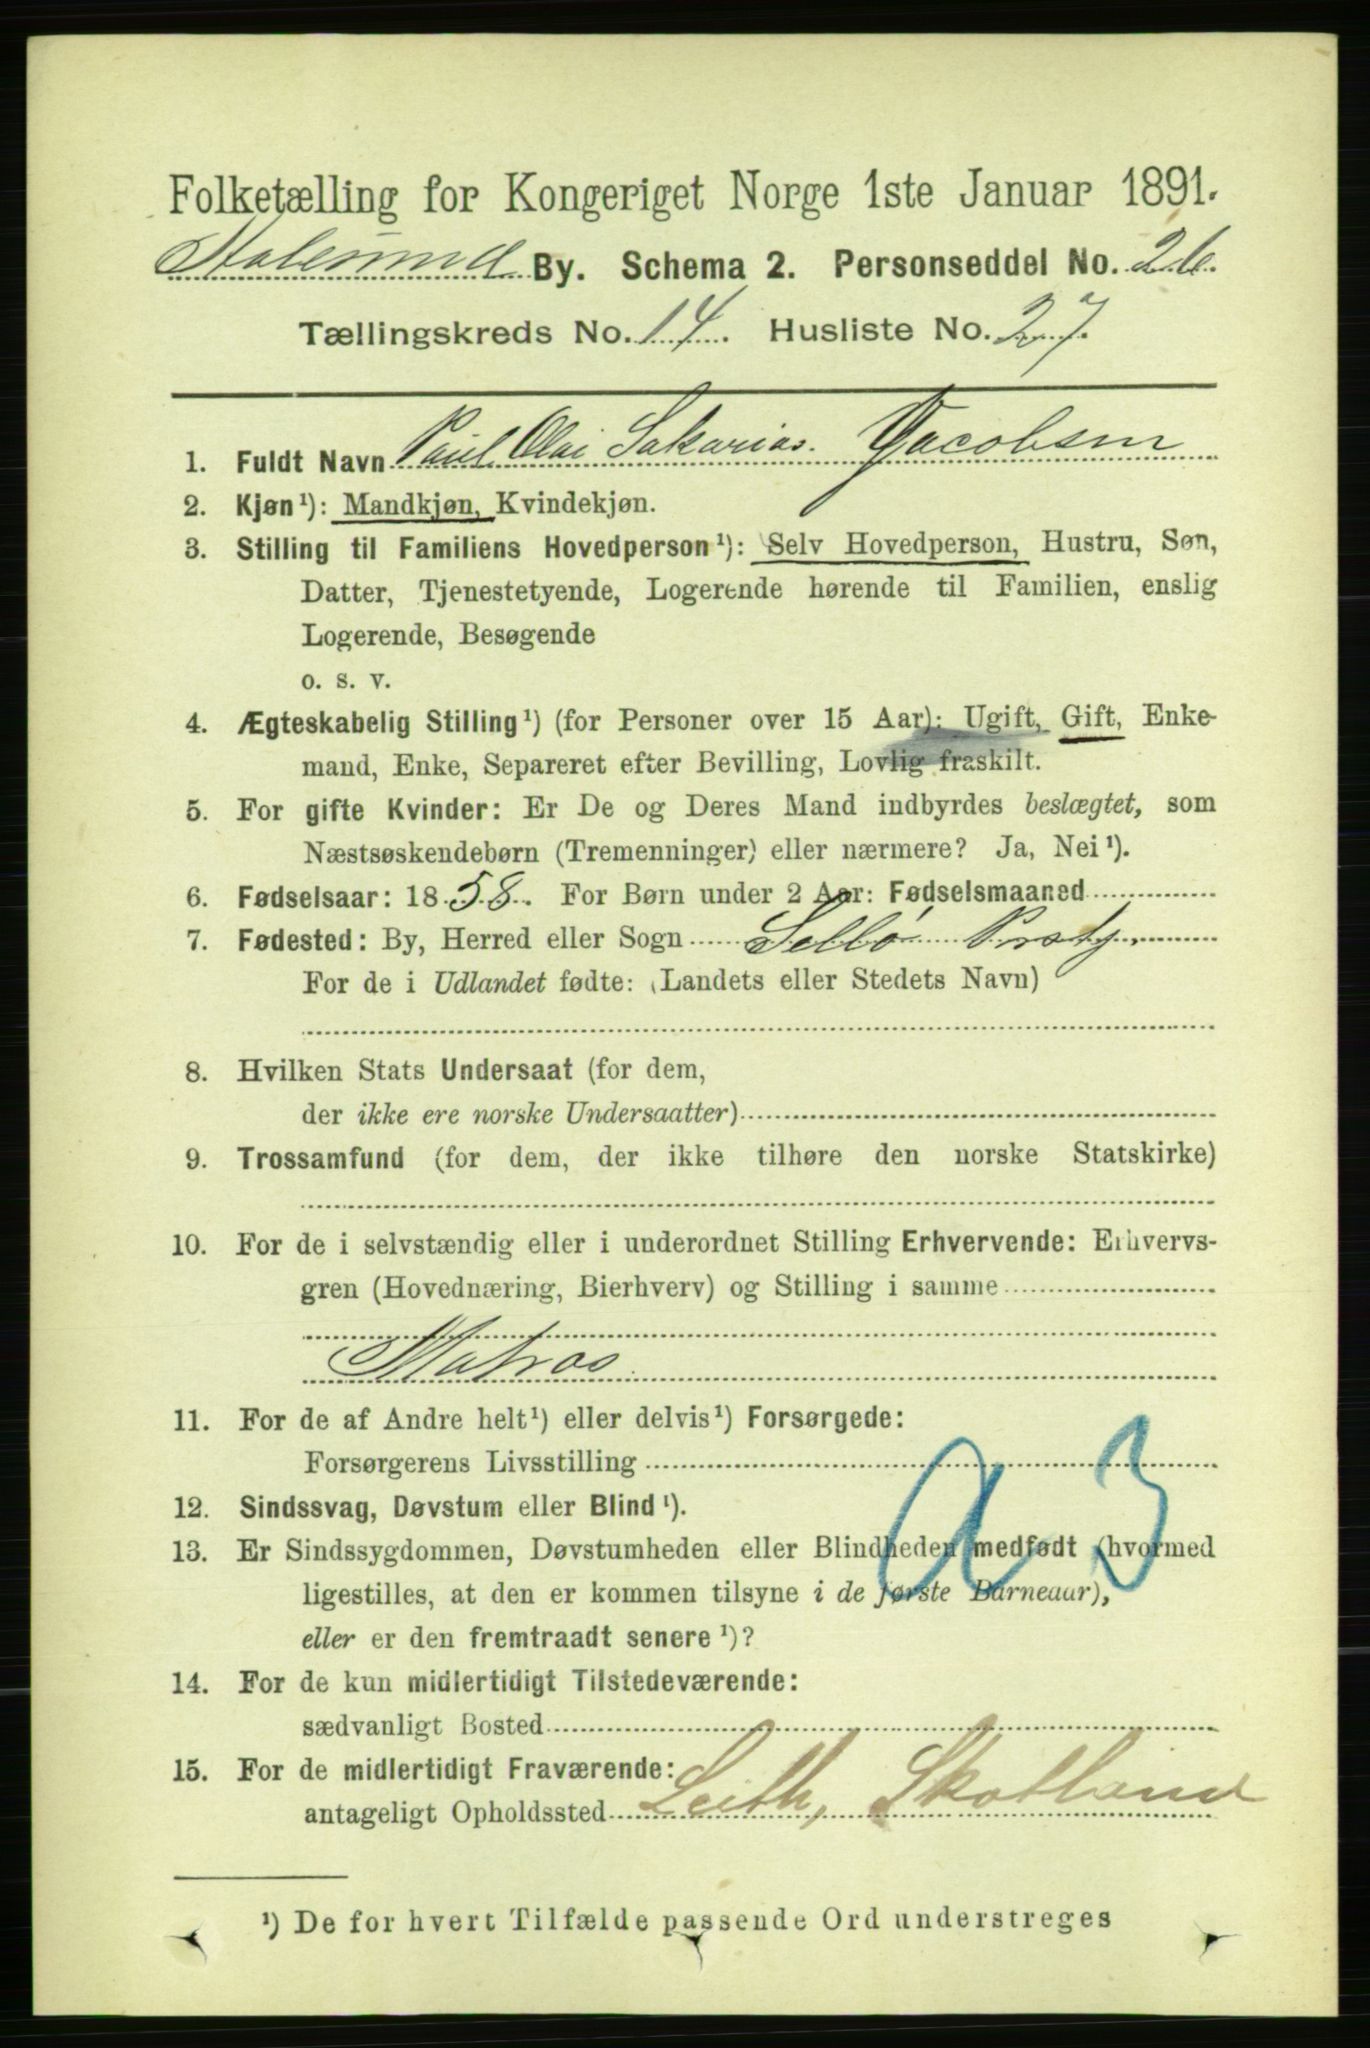 Folketælling for Kongeriget Norge 1ste Januar 1891.
Aalesund By. Schema 2. Personseddel No. 26.
Tællingskreds No. 14. Husliste No. 27.
1. Fuldt Navn Paul Olai Sakarias. Jacobsen
2. Kjøn¹): Mandkjøn, Kvindekjøn.
3. Stilling til Familiens Hovedperson¹): Selv Hovedperson, Hustru, Søn,
Datter, Tjenestetyende, Logerende hørende til Familien, enslig
Logerende, Besøgende
o. s. v.
4. Ægteskabelig Stilling¹) (for Personer over 15 Aar): Ugift, Gift, Enke-
mand, Enke, Separeret efter Bevilling, Lovlig fraskilt.
5. For gifte Kvinder: Er De og Deres Mand indbyrdes beslægtet, som
Næstsøskendebørn (Tremenninger) eller nærmere? Ja, Nei¹).
6. Fødselsaar: 1858. For Børn under 2 Aar: Fødselsmaaned
7. Fødested: By, Herred eller Sogn Selbö Prstgj.
For de i Udlandet fødte: (Landets eller Stedets Navn)
8. Hvilken Stats Undersaat (for dem,
der ikke ere norske Undersaatter)
9. Trossamfund (for dem, der ikke tilhøre den norske Statskirke)
10. For de i selvstændig eller i underordnet Stilling Erhvervende: Erhvervs-
gren (Hovednæring, Bierhverv) og Stilling i samme
Matros
11. For de af Andre helt¹) eller delvis¹) Forsørgede:
Forsørgerens Livsstilling
a 3
12. Sindssvag, Døvstum eller Blind¹).
13. Er Sindssygdommen, Døvstumheden eller Blindheden medfødt (hvormed
ligestilles, at den er kommen tilsyne i de første Barneaar),
eller er den fremtraadt senere¹)?
14. For de kun midlertidigt Tilstedeværende:
sædvanligt Bosted
15. For de midlertidigt Fraværende:
antageligt Opholdssted Leith, Skotland
¹) De for hvert Tilfælde passende Ord understreges